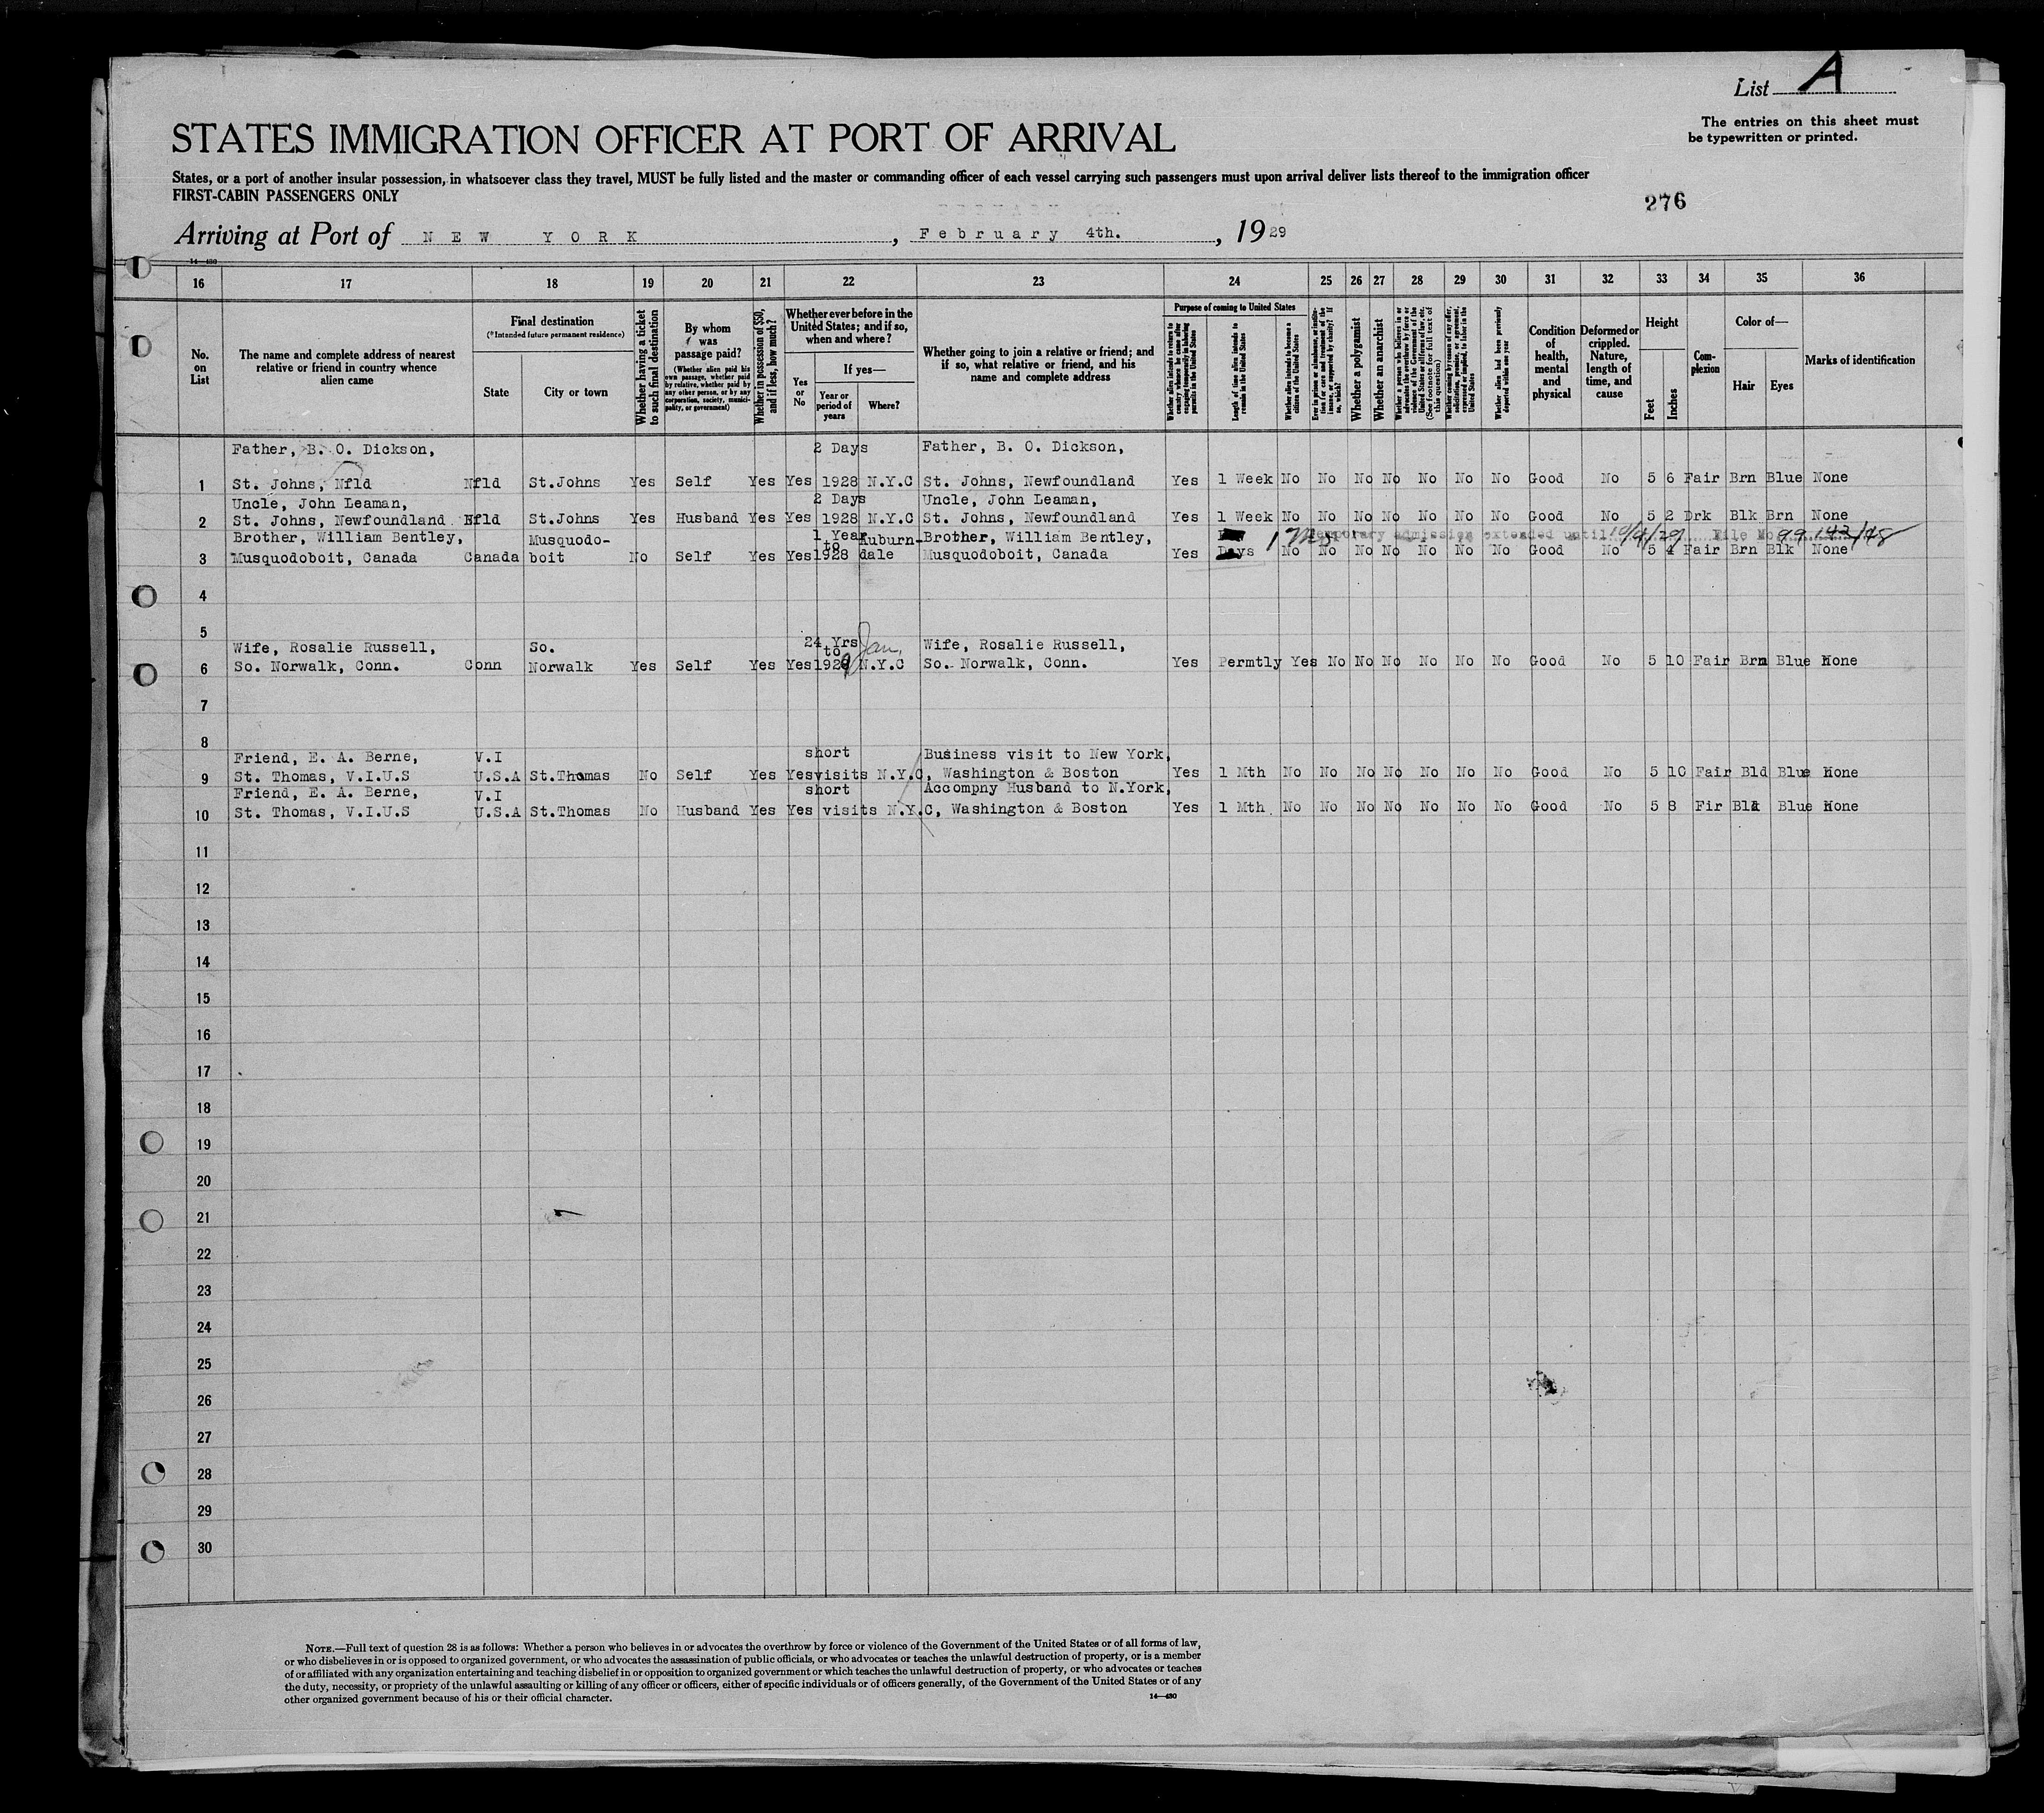 List A
The entries on this sheet must
be typewritten or printed.
STATES IMMIGRATION OFFICER AT PORT OF ARRIVAL
States, or a port of another insular possession, in whatsoever class they travel, MUST be fully listed and the master or commanding officer of each vessel carrying such passengers must upon arrival deliver lists thereof to the immigration officer
FIRST-CABIN PASSENGERS ONLY
276
Arriving at Port of NEW YORK, February 4th., 1929
14—480
16 17 18 19 20 21 22 23 24 25 26 27 28 29 30 31 32 33 34 35 36
No. on List
The name and complete address of nearest relative or friend in country whence alien came
Final destination
(*Intended future permanent residence)
State
City or town
Whether having a ticket to such final destination
By whom was passage paid?
(Whether alien paid his own passage, whether paid by relative, whether paid by any other person, or by any corporation, society, municipality, or government)
Whether in possession of $50, and if less, how much?
Whether ever before in the United States; and if so, when and where?
Yes or No
If yes—
Year or period of years
Where?
Whether going to join a relative or friend; and if so, what relative or friend, and his name and complete address
Purpose of coming to United States
Whether alien intends to return to country whence he came after engaging temporarily in laboring pursuits in the United States
Length of time alien intends to remain in the United States
Whether alien intends to become a citizen of the United States
Ever in prison or almshouse, or institution for care and treatment of the insane, or supported by charity? If so, which?
Whether a polygamist
Whether an anarchist
Whether a person who believes in or advocates the overthrow by force or violence of the Government of the United States or all forms of law, etc. (See footnote for full text of this question)
Whether coming by reason of any offer, solicitation, promise, or agreement, expressed or implied, to labor in the United States
Whether alien had been previously deported within one year
Condition of health, mental and physical
Deformed or crippled. Nature, length of time, and cause
Height
Feet
Inches
Complexion
Color of—
Hair
Eyes
Marks of identification
Father, B. O. Dickson, 2 Days Father, B. O. Dickson,
1 St. Johns, Nfld Nfld St.Johns Yes Self Yes Yes 1928 N.Y.C St. Johns, Newfoundland Yes 1 Week No No No No No No No Good No 5 6 Fair Brn Blue None
Uncle, John Leaman, 2 Days Uncle, John Leaman,
2 St. Johns, Newfoundland Nfld St.Johns Yes Husband Yes Yes 1928 N.Y.C St. Johns, Newfoundland Yes 1 Week No No No No No No No Good No 5 2 Drk Blk Brn None
Brother, William Bentley, Musquodo- 1 Year to Auburn- Brother, William Bentley, Temporary admission extended until 10/4/29 File No. 99143/48
3 Musquodoboit, Canada Canada boit No Self Yes Yes 1928 dale Musquodoboit, Canada Yes Days No No No No No No No Good No 5 4 Fair Brn Blk None
4
5
Wife, Rosalie Russell, So. 24 Yrs to Jan. Wife, Rosalie Russell,
6 So. Norwalk, Conn. Conn Norwalk Yes Self Yes Yes 1929 N.Y.C So. Norwalk, Conn. Yes Permtly Yes No No No No No No Good No 5 10 Fair Brn Blue None
7
8
Friend, E. A. Berne, V.I short Business visit to New York,
9 St. Thomas, V.I.U.S U.S.A St.Thomas No Self Yes Yes visits N.Y.C, Washington & Boston Yes 1 Mth No No No No No No No Good No 5 10 Fair Bld Blue None
Friend, E. A. Berne, V.I short Accompny Husband to N.York,
10 St. Thomas, V.I.U.S U.S.A St.Thomas No Husband Yes Yes visits N.Y.C, Washington & Boston Yes 1 Mth No No No No No No No Good No 5 8 Fir Bld Blue None
11
12
13
14
15
16
17
18
19
20
21
22
23
24
25
26
27
28
29
30
NOTE.—Full text of question 28 is as follows: Whether a person who believes in or advocates the overthrow by force or violence of the Government of the United States or of all forms of law,
or who disbelieves in or is opposed to organized government, or who advocates the assassination of public officials, or who advocates or teaches the unlawful destruction of property, or is a member
of or affiliated with any organization entertaining and teaching disbelief in or opposition to organized government or which teaches the unlawful destruction of property, or who advocates or teaches
the duty, necessity, or propriety of the unlawful assaulting or killing of any officer or officers, either of specific individuals or of officers generally, of the Government of the United States or of any
other organized government because of his or their official character.
14—480